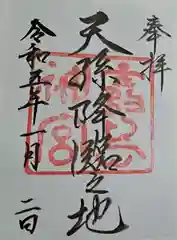 奉拝
天孫降臨之地
令和五年一月二日